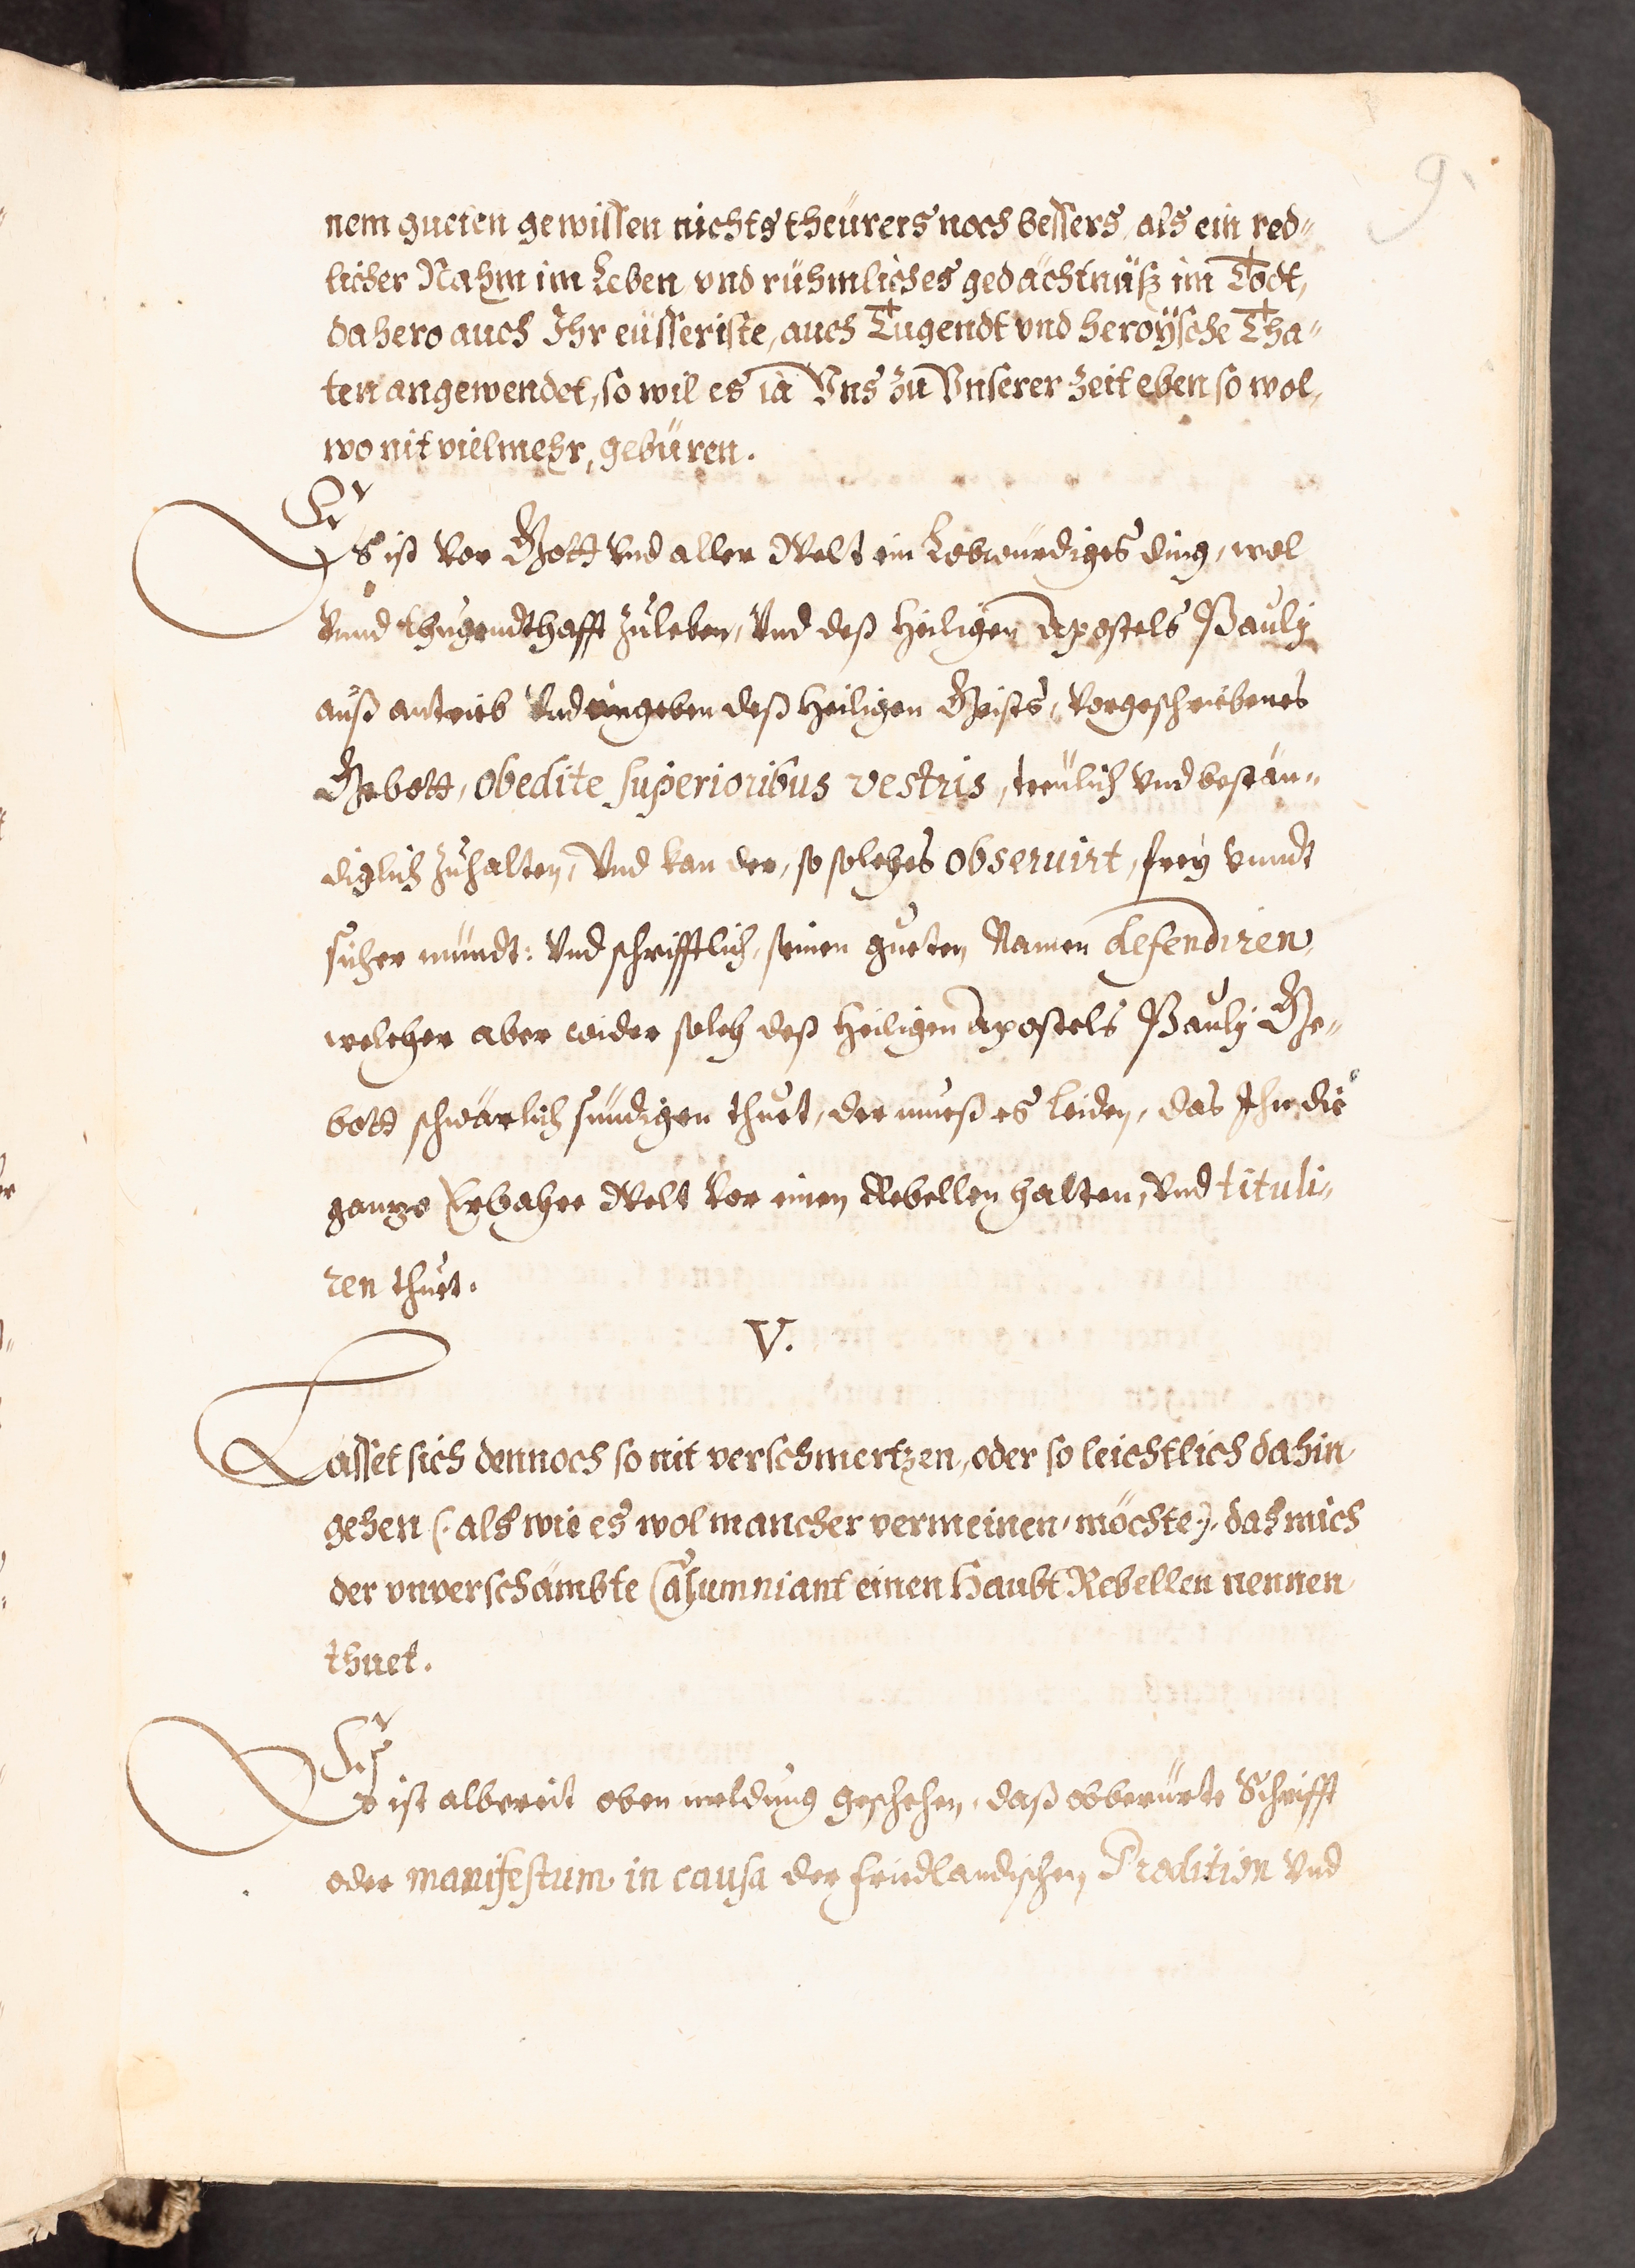 9.
nem gueten gewissen nichts theürers noch bessers, als ein red„
licher Nahm im Leben vnd rühmliches gedächtnüß im Todt,
dahero auch Ihr eüsseriste, auch Tugendt vnd heroÿsche Tha„
ten angewendet, so wil es ia Vns zu Vnserer Zeit eben so wol,
wo nit vielmehr, gebüren.
Es ist vor Gott vnd aller Welt ein Lobwürdiges ding, wol
vnnd thugendthafft zuleben, Vnd deß Heiligen Apostels Pauly
auß antrieb vnd eingeben deß Heiligen Geists, vorgeschriebenes
Gebott, obedite superioribus vestris, treulich vnd bestän„
diglich zuhalten, Vnd kan der, so solches obseruirt, frey vnndt
sicher mündt: vnd schrifftlich, seinen gueten Namen defendiren,
welcher aber wider solch deß Heiligen Apostels Pauly Ge„
bott schwärlich sündigen thuet, der mueß es leiden, das Ihn die
gantze Erbahre Welt vor einen Rebellen halten, vnd tituli„
ren thuet.
V.
Lasset sich dennoch so nit verschmertzen, oder so leichtlich dahin
gehen (: als wie es wol mancher vermeinen möchte:) das mich
der vnverschämbte Calumniant einen Haubt Rebellen nennen
thuet.
Es ist albereit oben meldung geschehen, daß obberürte Schrifft
oder manifestum in causa der Friedlandischen Prodition vnd